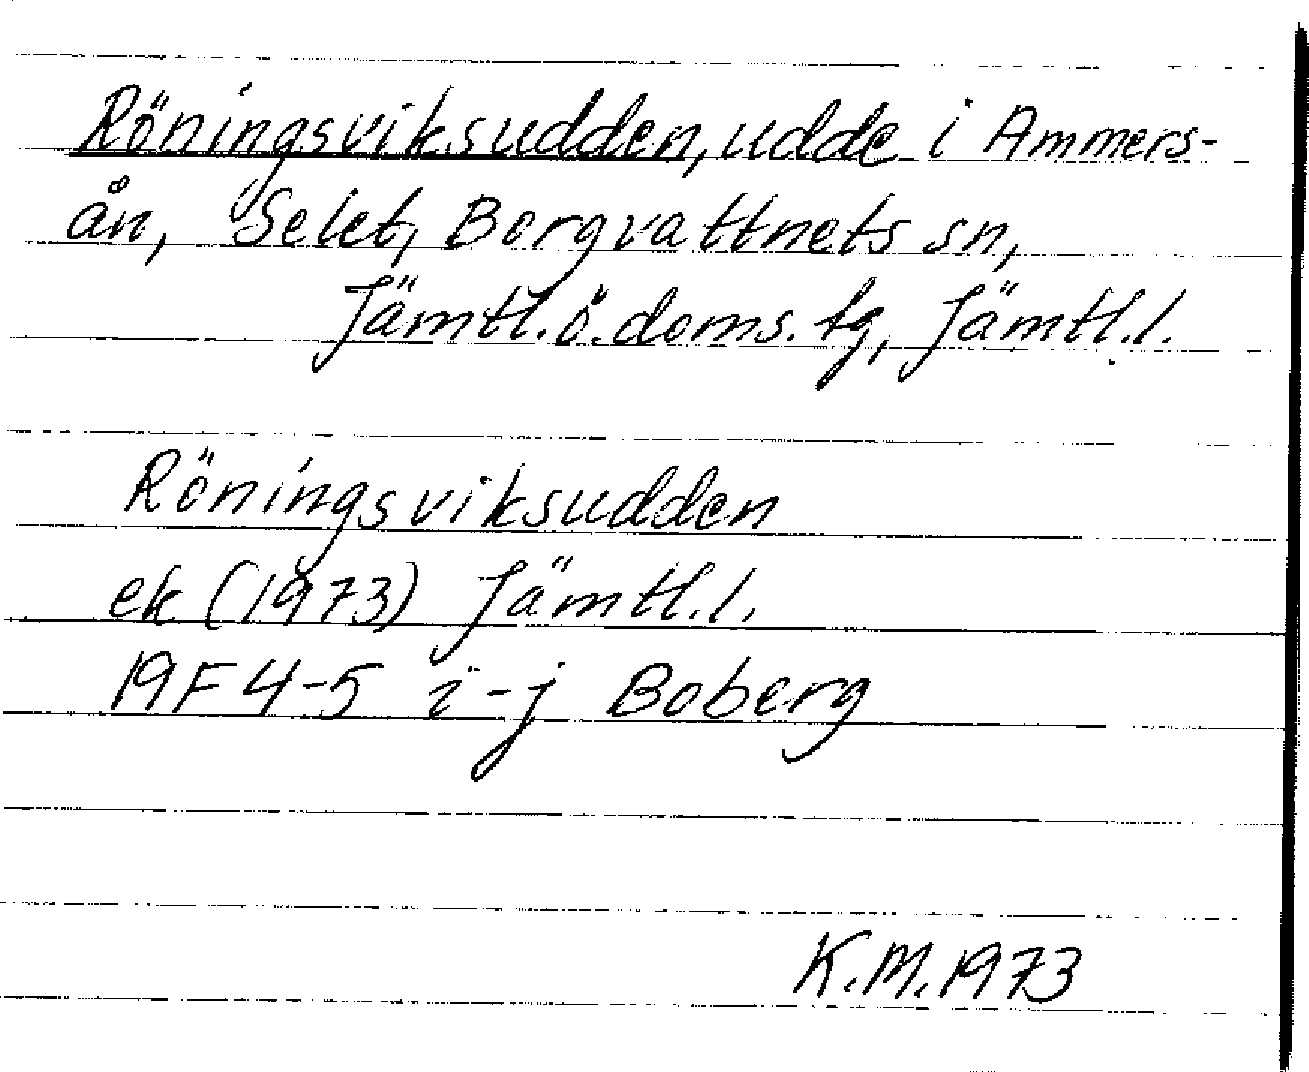 Röningsviksudden, udde i Ammers-
ån, Selet, Borgvattnets sn,
Jämtl.ö.doms.tg, Jämtl.l.
Röningsviksudden
ek (1973) Jämtl.l.
19F 4-5 i-j Boberg
K.M. 1973